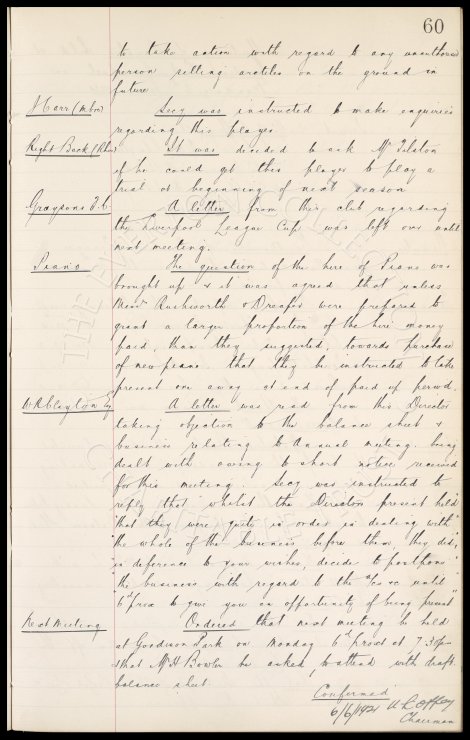 60
to take action with regard to any unauthorised
person selling articles on the ground in
future
Secy was instructed to make enquiries
regarding this player
Right Back (Rhyl) It was decided to ask Mr
if he could get this player to play a
trial at beginning of next season
Graysons F.C. A letter from this club regarding
the Liverpool League Cup was left over until
next meeting.
Piano The question of the hire of Piano was
brought up & it was agreed that unless
Messrs Rushworth & Dreaper were prepared to
grant a larger proportion of the hire money
paid, than they suggested, towards purchase
of new piano that they be instructed to take
present one away at end of paid up period.
W R Clayton Esq A letter was read from this Director
taking objection to the balance sheet &
business relating to Annual meeting being
dealt with owing to short notice received
for this meeting. Secy was instructed to
reply that "whilst the Directors present held"
"that they were quite in order in dealing with"
"the whole of the business before them they did,"
"in deference to your wishes, decide to postpone"
"the business with regard to the until"
"6th prox to give you an opportunity of being present"
Next Meeting Ordered that next meeting be held
at Goodison Park on Monday 6th prox at 7.30pm
& that Mr H Bowler be asked to attend with draft
balance sheet
Confirmed
6/6/1921
Chairman